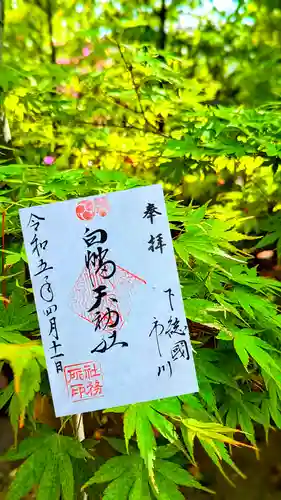 奉拝
下総國
市川
白幡天神社
令和五年四月十一日
社務
社印